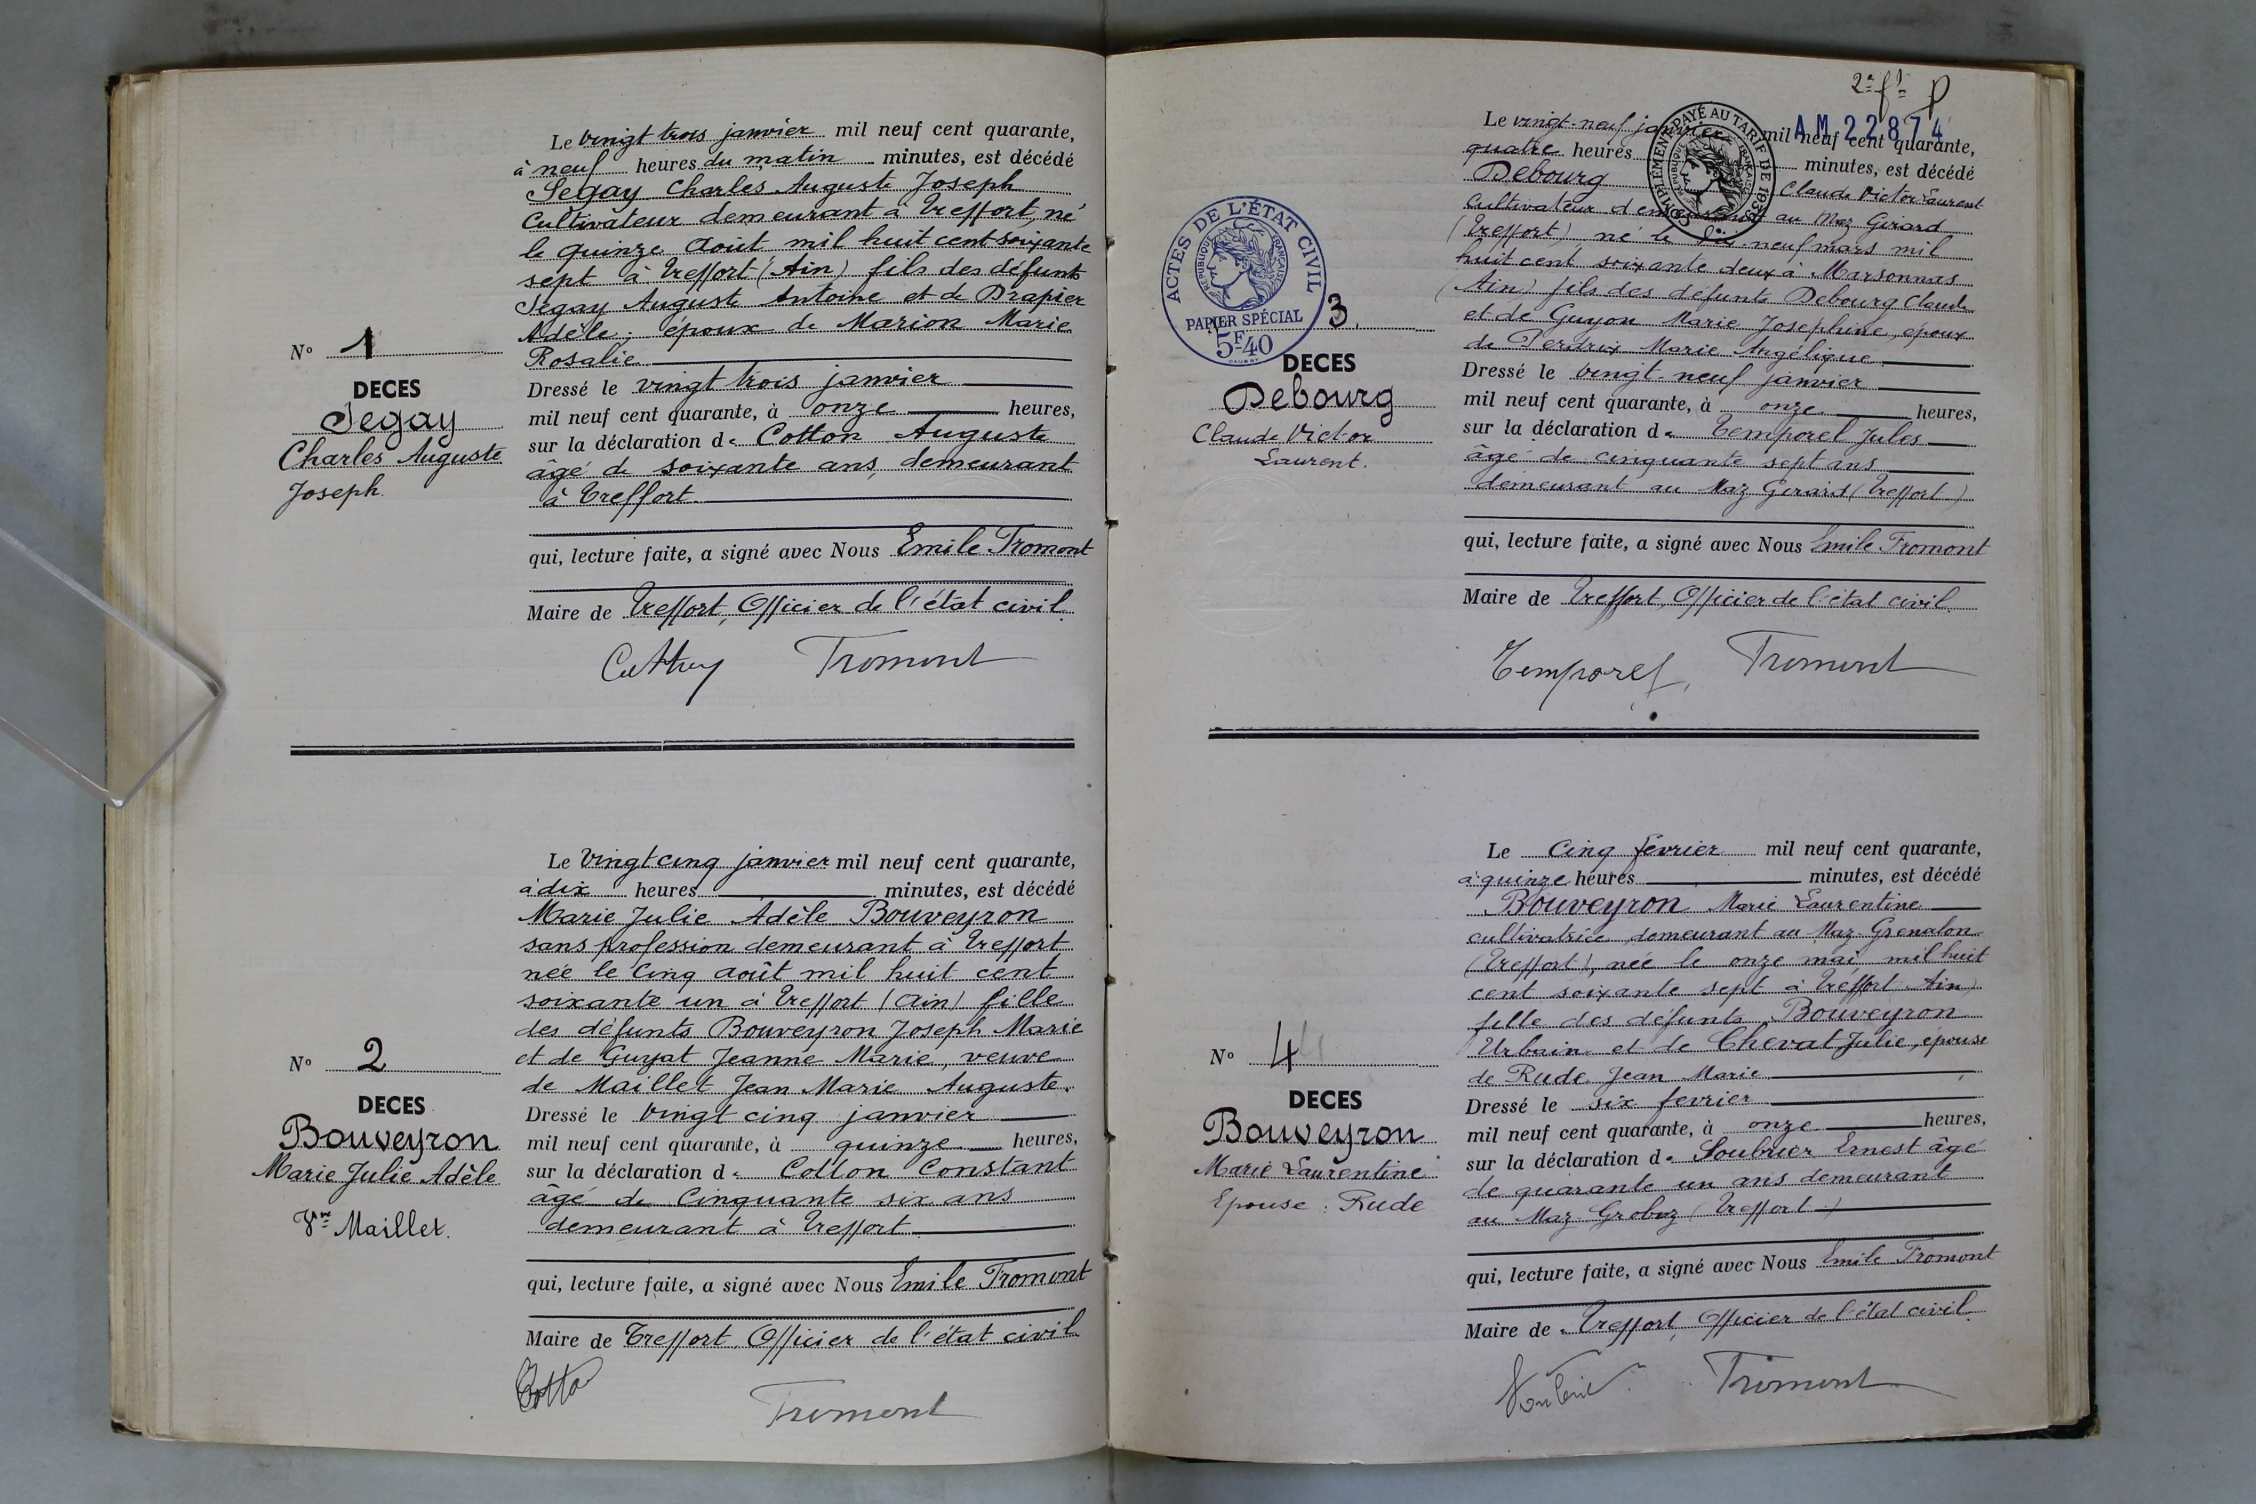 Le vingt trois janvier mil neuf cent quarante,
à neuf heures du matin minutes, est décédé
Segay Charles Auguste Joseph
Cultivateur demeurant à Treffort, né
le quinze Août mil huit cent soixante
sept à Treffort (Ain) fils des défunts
Segay Auguste Antoine et de Drapier
Adèle; époux de Marion Marie
Rosalie
N° 1
DECES
Segay
Charles Auguste
Joseph.
Dressé le vingt trois janvier
mil neuf cent quarante, à onze heures,
sur la déclaration de Cotton Auguste
âgé de soixante ans, demeurant
à Treffort.
qui, lecture faite, a signé avec Nous Emile Fromont
Maire de Treffort, Officier de l'état civil.
Fromont
Le Vingt cinq janvier mil neuf cent quarante,
à dix heures minutes, est décédé
Marie Julie Adèle Bouveyron
sans profession demeurant à Treffort
née le Cinq août mil huit cent
soixante un à Treffort (Ain) fille
des défunts Bouveyron Joseph Marie
et de Guyat Jeanne Marie, veuve
de Maillet Jean Marie Auguste.
N° 2
DECES
Bouveyron
Marie Julie Adèle
Vve Maillet.
Dressé le vingt cinq janvier
mil neuf cent quarante, à quinze heures,
sur la déclaration de Cotton Constant
âgé de Cinquante six ans
demeurant à Treffort
qui, lecture faite, a signé avec Nous Emile Fromont
Maire de Treffort, Officier de l'état civil
Cotton
Fromont
AM 22874
COMPLÉMENT PAYÉ AU TARIF DE 1938
Le vingt-neuf janvier mil neuf cent quarante,
quatre heures minutes, est décédé
Debourg Claude Victor Laurent
Cultivateur demeurant au Maz Girard
(Treffort) né le dix neuf mars mil
huit cent soixante deux à Marsonnas
(Ain) fils des défunts Debourg Claude
et de Guyon Marie Josephine, époux
de Perdrix Marie Angélique
ACTES DE L'ÉTAT CIVIL
REPUBLIQUE FRANÇAISE
PAPIER SPÉCIAL
5F40
3.
DECES
Debourg
Claude Victor
Laurent.
Dressé le vingt-neuf janvier
mil neuf cent quarante, à onze heures,
sur la déclaration de Temporel Jules
âgé de cinquante sept ans
demeurant au Maz Girard (Treffort)
qui, lecture faite, a signé avec Nous Emile Fromont
Maire de Treffort, Officier de l'état civil.
Temporel. Fromont
Le Cinq février mil neuf cent quarante,
à quinze heures minutes, est décédé
Bouveyron Marie Laurentine
cultivatrice demeurant au Maz Grenalon
(Treffort), née le onze mai mil huit
cent soixante sept à Treffort (Ain)
fille des défunts Bouveyron
Urbain et de Chevat Julie, épouse
de Rude Jean Marie
N° 4
DECES
Bouveyron
Marie Laurentine
Epouse: Rude
Dressé le six fevrier
mil neuf cent quarante, à onze heures,
sur la déclaration de Soubrier Ernest âgé
de quarante un ans demeurant
au Maz Groboz (Treffort)
qui, lecture faite, a signé avec Nous Emile Fromont
Maire de Treffort, Officier de l'état civil.
Fromont